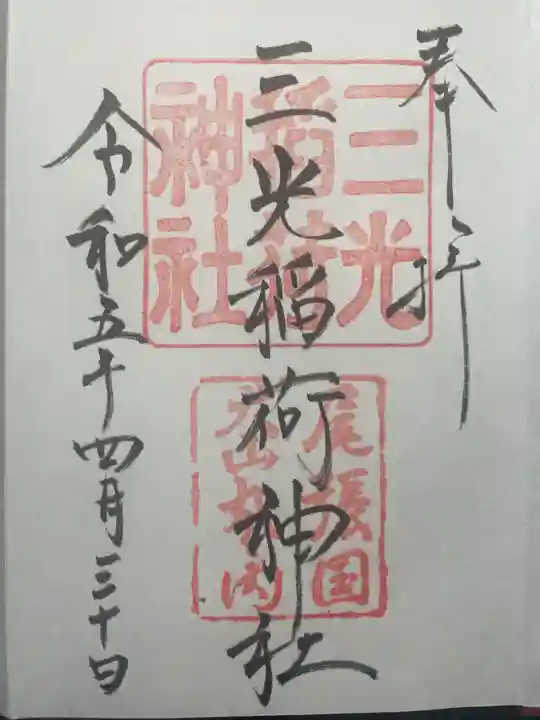 奉拝
三光稲荷神社
令和五年四月三十日
三光
稲荷
神社
尾張国
犬山城内